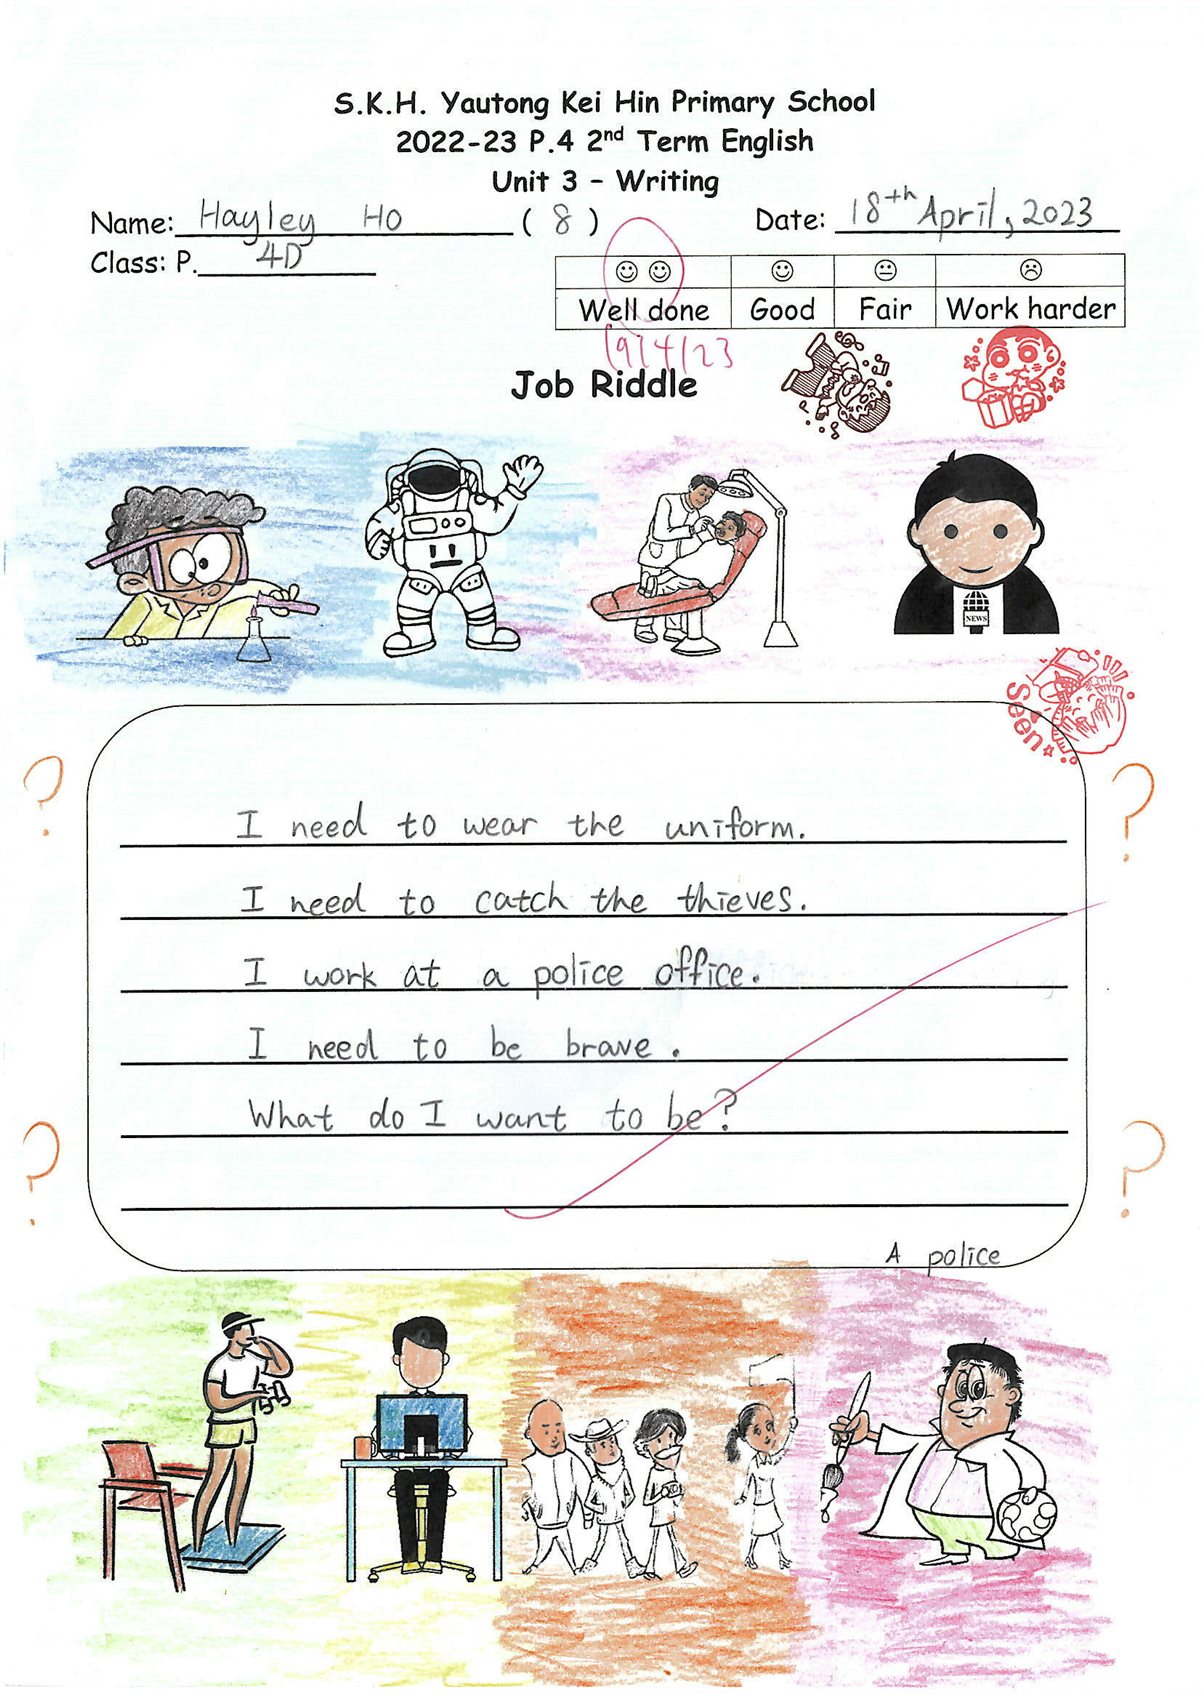 S.K.H. Yautong Kei Hin Primary School
2022-23 P.4 2nd Term English
Unit 3 – Writing
Name: Hayley Ho ( 8 ) Date: 18th April, 2023
Class: P. 4D
Well done Good Fair Work harder
19/4/23
Job Riddle
NEWS
Seen
I need to wear the uniform.
I need to catch the thieves.
I work at a police office.
I need to be brave.
What do I want to be?
A police